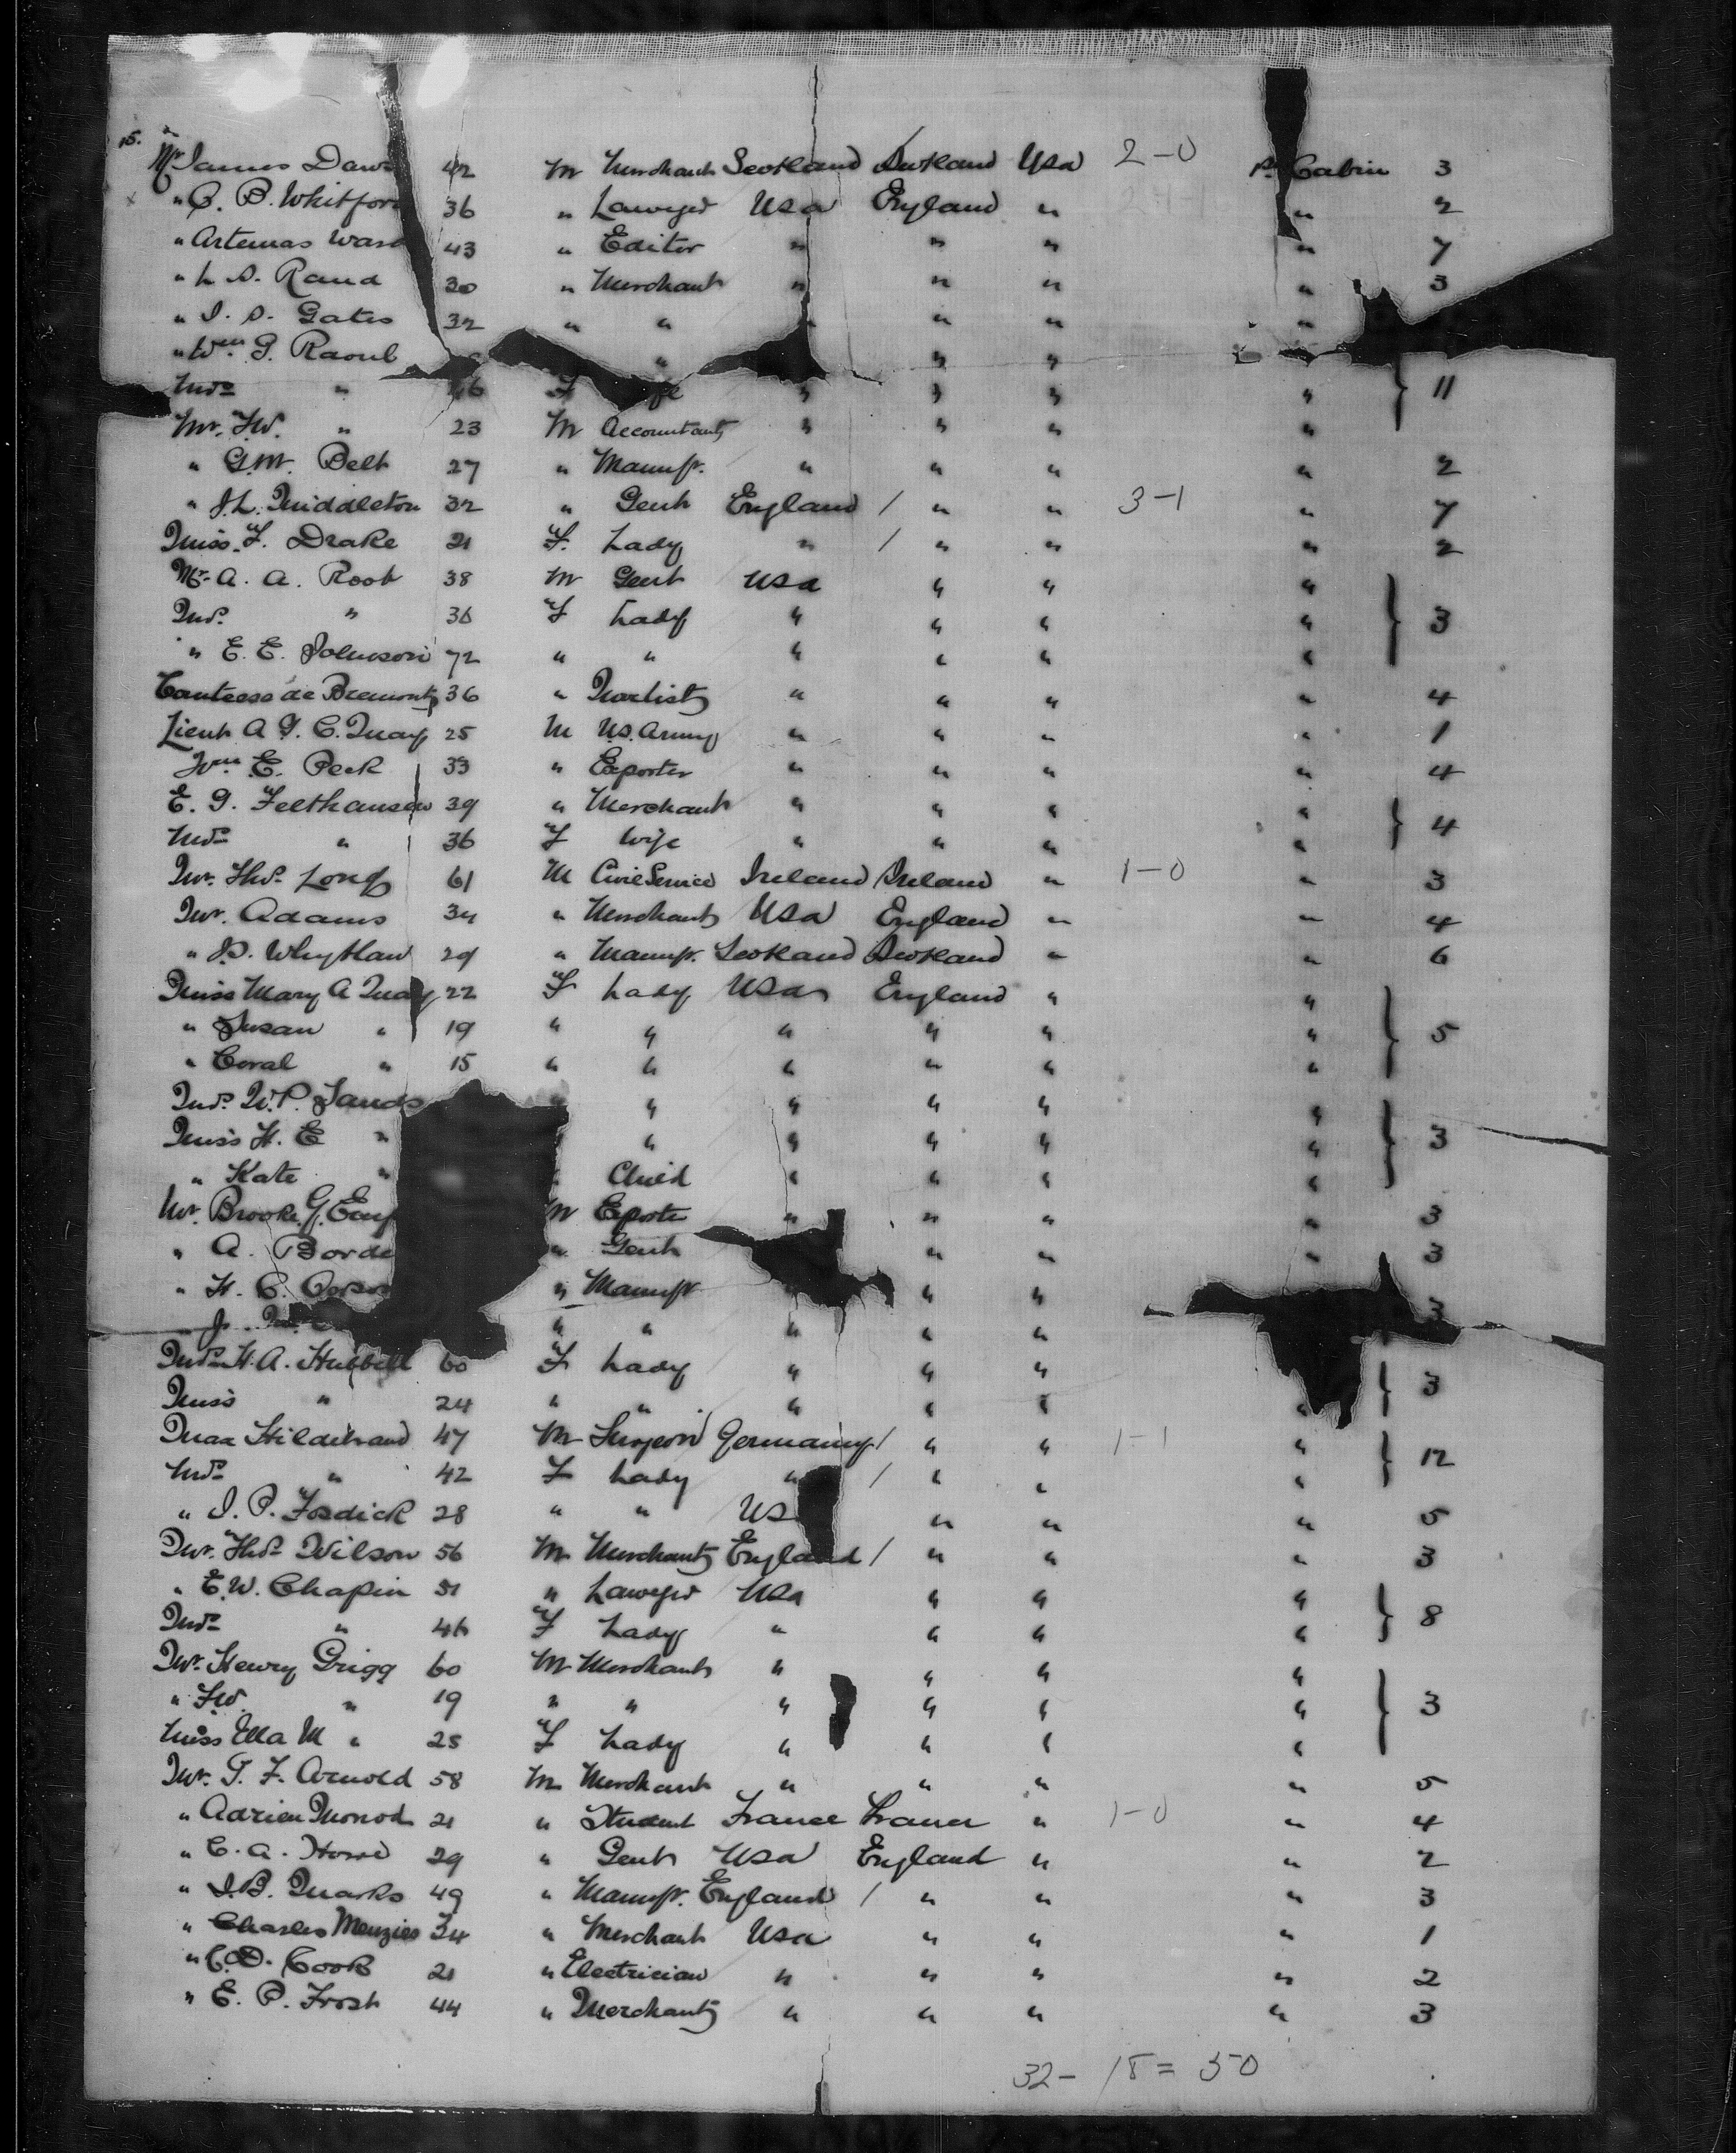 15.
Mr James Daws 42 M Merchant Scotland Scotland USA 2-0 1st Cabin 3
" C. B. Whitford 36 " Lawyer USA England " " 2
" Artemas Ward 43 " Editor " " " " 7
" L. S. Rand 30 " Merchant " " " " 3
" I. S. Gates 32 " " " " "
" Wm G. Raoul " " " "
Mrs " 46 F " " " " } 11
Mr. T.W. " 23 M Accountant " " " "
" G.M. Belt 27 " Manufr. " " " " 2
" J.L. Middleton 32 " Gent England / " " 3-1 " 7
Miss. F. Drake 21 F. Lady " / " " " 2
Mr. A. A. Root 38 M Gent USA " " "
Mrs. " 36 F Lady " " " " } 3
" E. E. Johnson 72 " " " " " "
Comtesse de Bremont 36 " " " " " 4
Lieut A. G. C. Quay 25 M U.S. Army " " " " 1
Wm E. Peck 33 " Exporter " " " " 4
E. G. Felthausen 39 " Merchant " " " "
Mrs " 36 F Wife " " " " } 4
Mr. Thos. Long 61 M Civil Service Ireland Ireland " 1-0 " 3
Mr. Adams 34 " Merchant USA England " " 4
" J.B. Whytlaw 29 " Manufr. Scotland Scotland " " 6
Miss Mary A Quay 22 F Lady USA England " "
" Susan " 19 " " " " " " } 5
" Coral " 15 " " " " " "
Mrs. W.P. Sands " " " " "
Miss H. E " " " " " " } 3
" Kate " Child " " " "
Mr. Brooke G. M Exporter " " " " 3
" A. Borde " Gent " " " 3
" H. C. " Manufr " " 3
" J. " " " " "
Mrs. H. A. Hubbell 60 F Lady " " "
Miss " 24 " " " " " " } 3
Max Hildebrand 47 M Surgeon Germany / " " 1-1 "
Mrs " 42 F Lady " / " " " } 12
" I. P. Fosdick 28 " " US " " " 5
Mr. Thos. Wilson 56 M Merchant England / " " " 3
" E.W. Chapin 51 " Lawyer USA " " "
Mrs " 46 F Lady " " " " } 8
Mr. Henry Grigg 60 M Merchant " " " "
" F.W. " 19 " " " " " " } 3
Miss Ella M " 25 F Lady " " " "
Mr. T. F. Arnold 58 M Merchant " " " " 5
" Adrien Monod 21 " Student France France " 1-0 " 4
" C. A. Howe 29 " Gent USA England " " 2
" I.B. Marks 49 " Manufr. England / " " " 3
" Charles Menzies 34 " Merchant USA " " " 1
" C.D. Cook 21 " Electrician " " " " 2
" E. P. Frost 44 " Merchant " " " " 3
32- 18 = 50